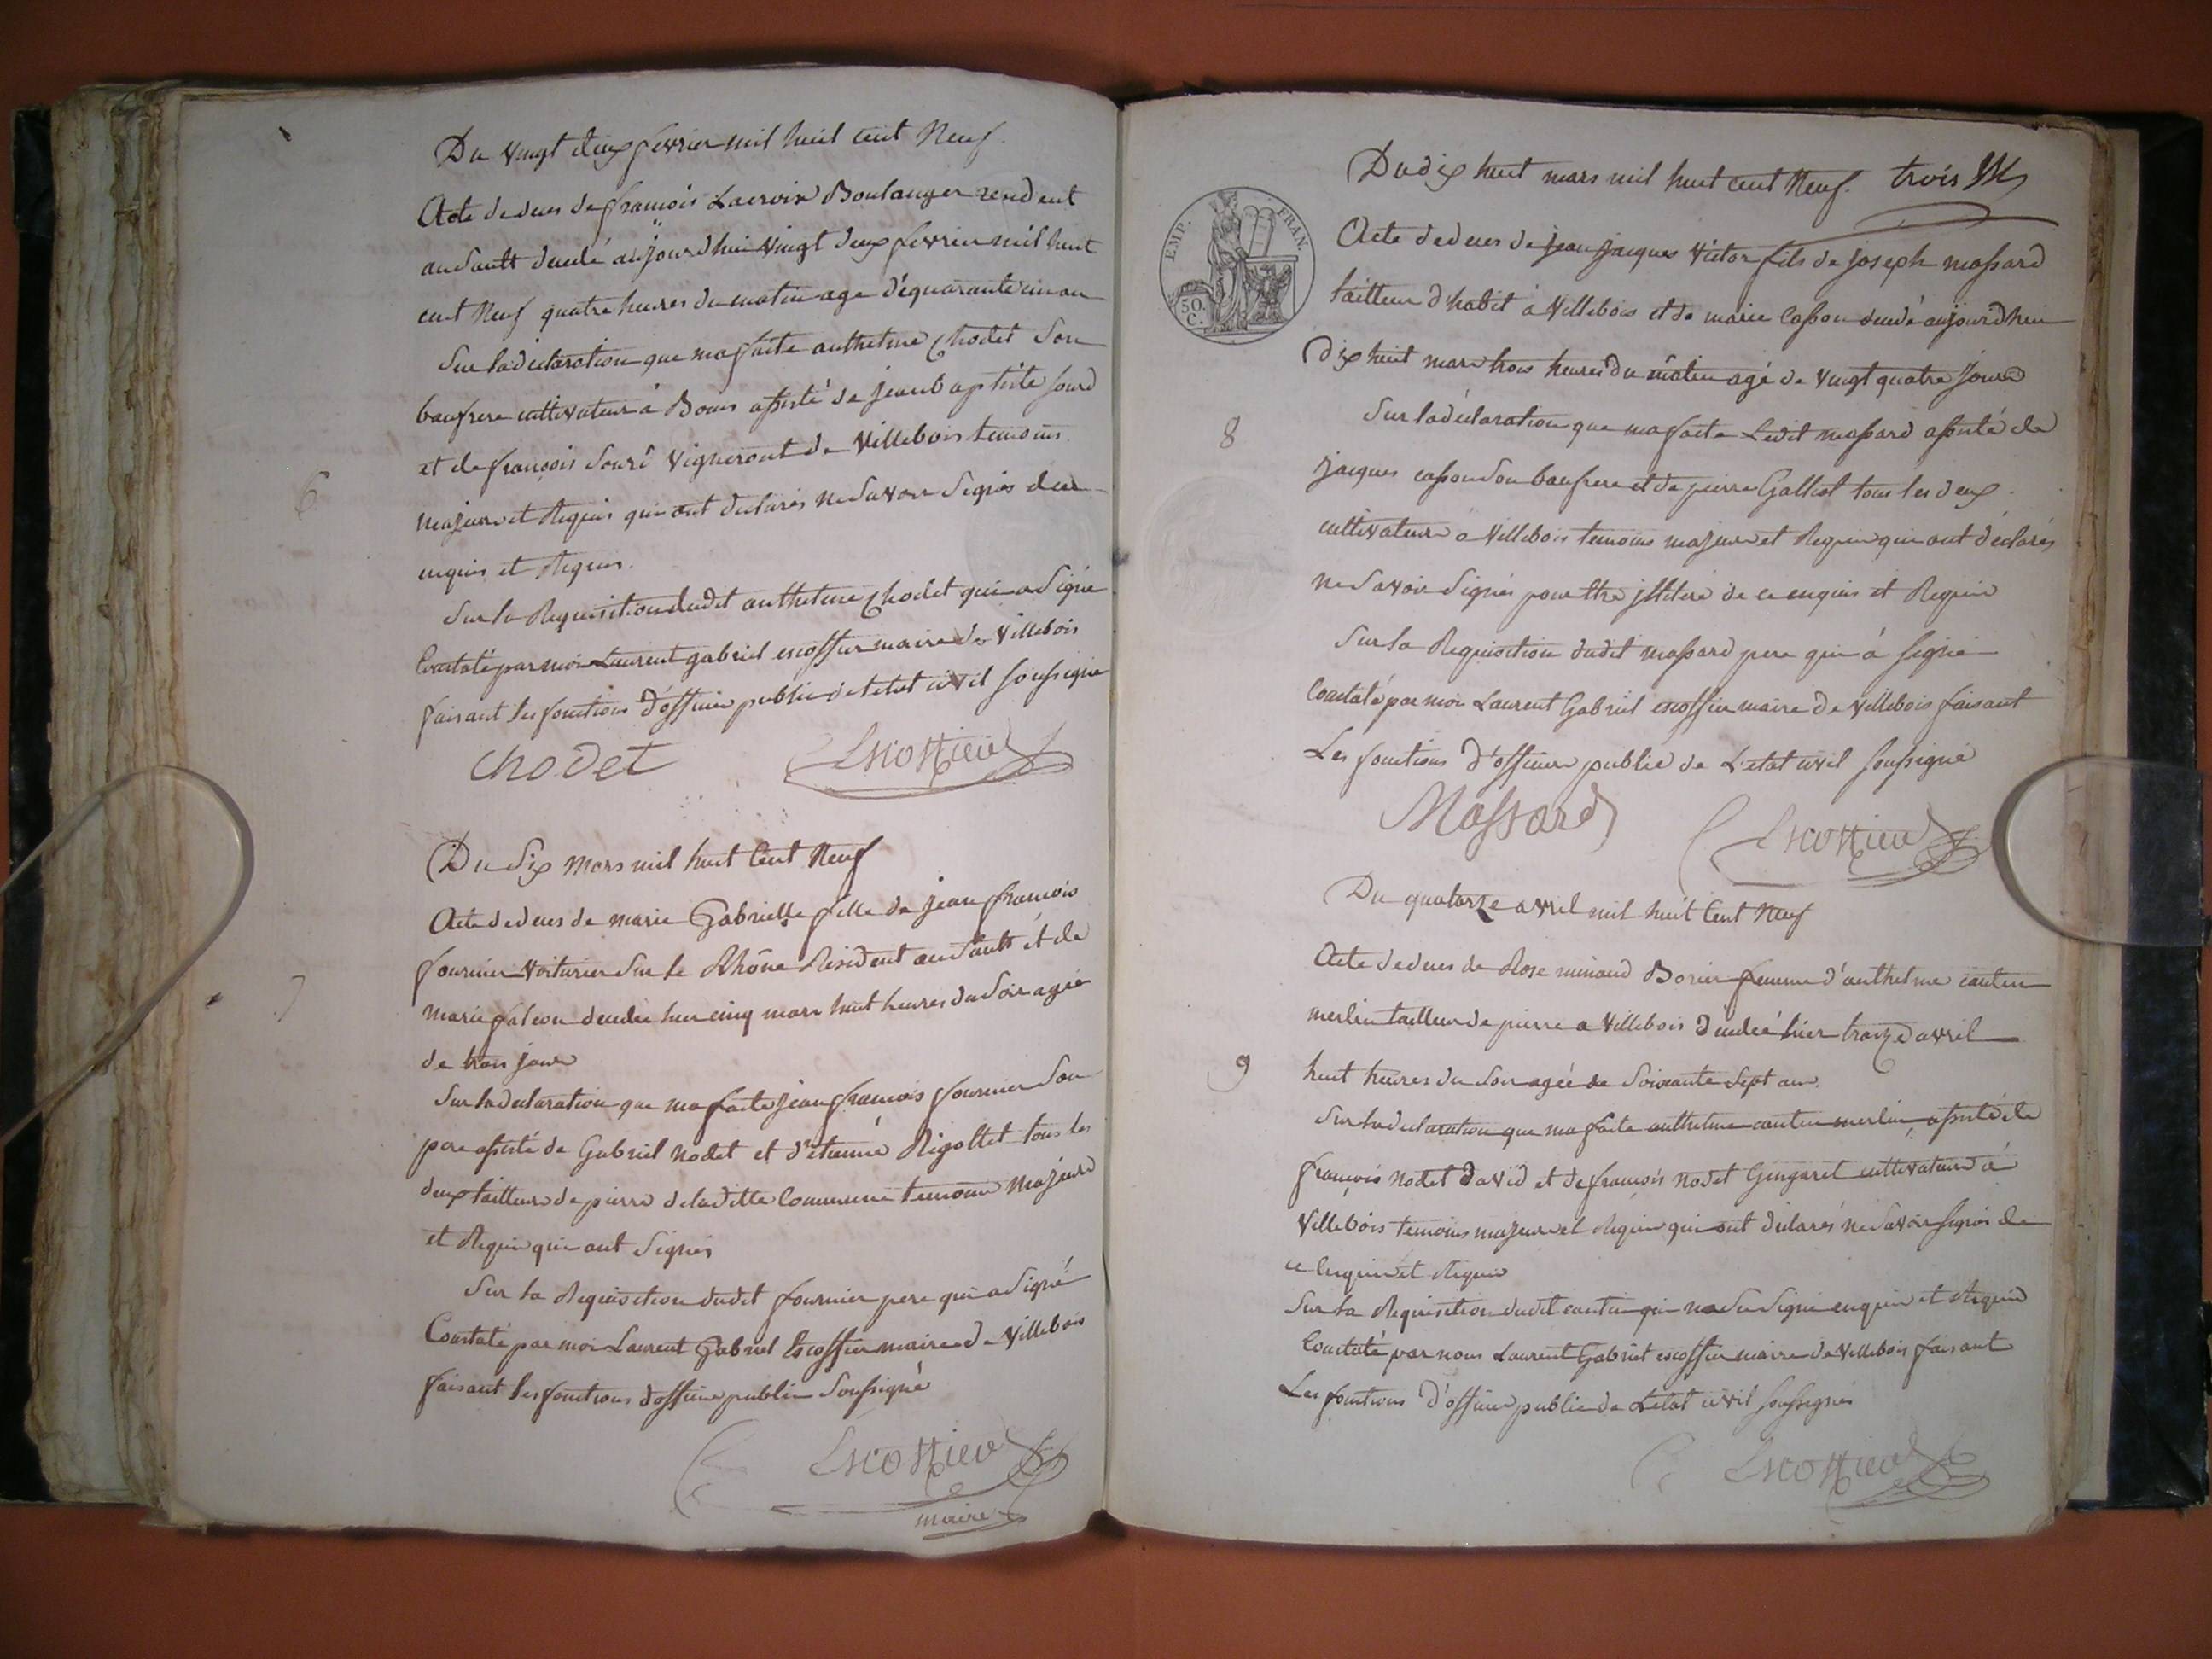 Du vingt deux fevrier mil huit cent Neuf.
Acte de deces de françois Lacroix Boulanger resident
au Sault decedé aujourdhui vingt deux fevrier mil huit
cent Neuf quatre heures du matin age de quarante cinq an
Sur la declaration que ma faite anthelme Chodet Son
baufrere cultivateur à Bouis assisté de jean baptiste Sourd
et de françois Sourd vigneront de Villebois temoins
majeurs et Requis qui ont declarés ne Savoir Signés de ce
enquis et Requis.
6
Sur la Requisition dudit anthelme Chodet qui a Signé
Constaté par moi Laurent gabriel escoffier maire de Villebois
faisant les fonctions d'officier public de l'etat civil soussigné
Chodet Escoffier
Du Six Mars mil huit Cent Neuf
Acte de deces de marie Gabrielle fille de jean françois
fournier voiturier Sur le Rhône Resident au Sault et de
marie falcon decedée hier cinq mars huit heures du Soir agée
de trois jours
7
Sur la declaration que ma faite jean françois fournier Son
pere assisté de Gabriel Nodet et d'etienne Rigollet tous les
deux tailleurs de pierre de la ditte Commune temoins Majeurs
et Requis qui ont Signés
Sur la Requisition dudit fournier pere qui a Signé
Constaté par moi Laurent Gabriel Escoffier maire de Villebois
faisant les fonctions d'officier public Soussigné
Escoffier
maire
Du dix huit mars mil huit cent Neuf. trois
EMP. FRAN.
50 C.
Acte de deces de jean jacques Victor fils de joseph massard
tailleur d'habit à Villebois et de marie Casson decedé aujourdhui
Dix huit mars trois heures du matin agé de vingt quatre jours
Sur la déclaration que ma faite Ledit massard assisté de
8
jacques casson Son baufrere et de pierre Galliot tous les deux
cultivateurs a Villebois temoins majeurs et Requis qui ont déclarés
ne Savoir Signés pour être illiteré de ce enquis et Requis
Sur la Requisition dudit massard pere qui à signé
Constaté par moi Laurent Gabriel escoffier maire de Villebois faisant
Les fonctions d'officier public de L'etat civil soussigné
Massard Escoffier
Du quatorze avril mil huit Cent Neuf
Acte de deces de Rose minaud Borier femme d'anthelme cantin
merlin tailleur de pierre a Villebois decedée hier treize avril
9
huit heures du Soir agée de Soixante Sept ans.
Sur la declaration que ma faite anthelme cantin merlin assisté de
françois Nodet David et de françois Nodet Gingaret cultivateurs à
Villebois temoins majeurs et Requis qui ont déclarés ne Savoir signés de
ce Enquis et Requis
Sur la Requisition dudit cantin qui na Su Signé enquis et Requis
Constaté par nous Laurent Gabriel escoffier maire de Villebois faisant
Les fonctions d'officier public de L'etat civil soussignés
Escoffier